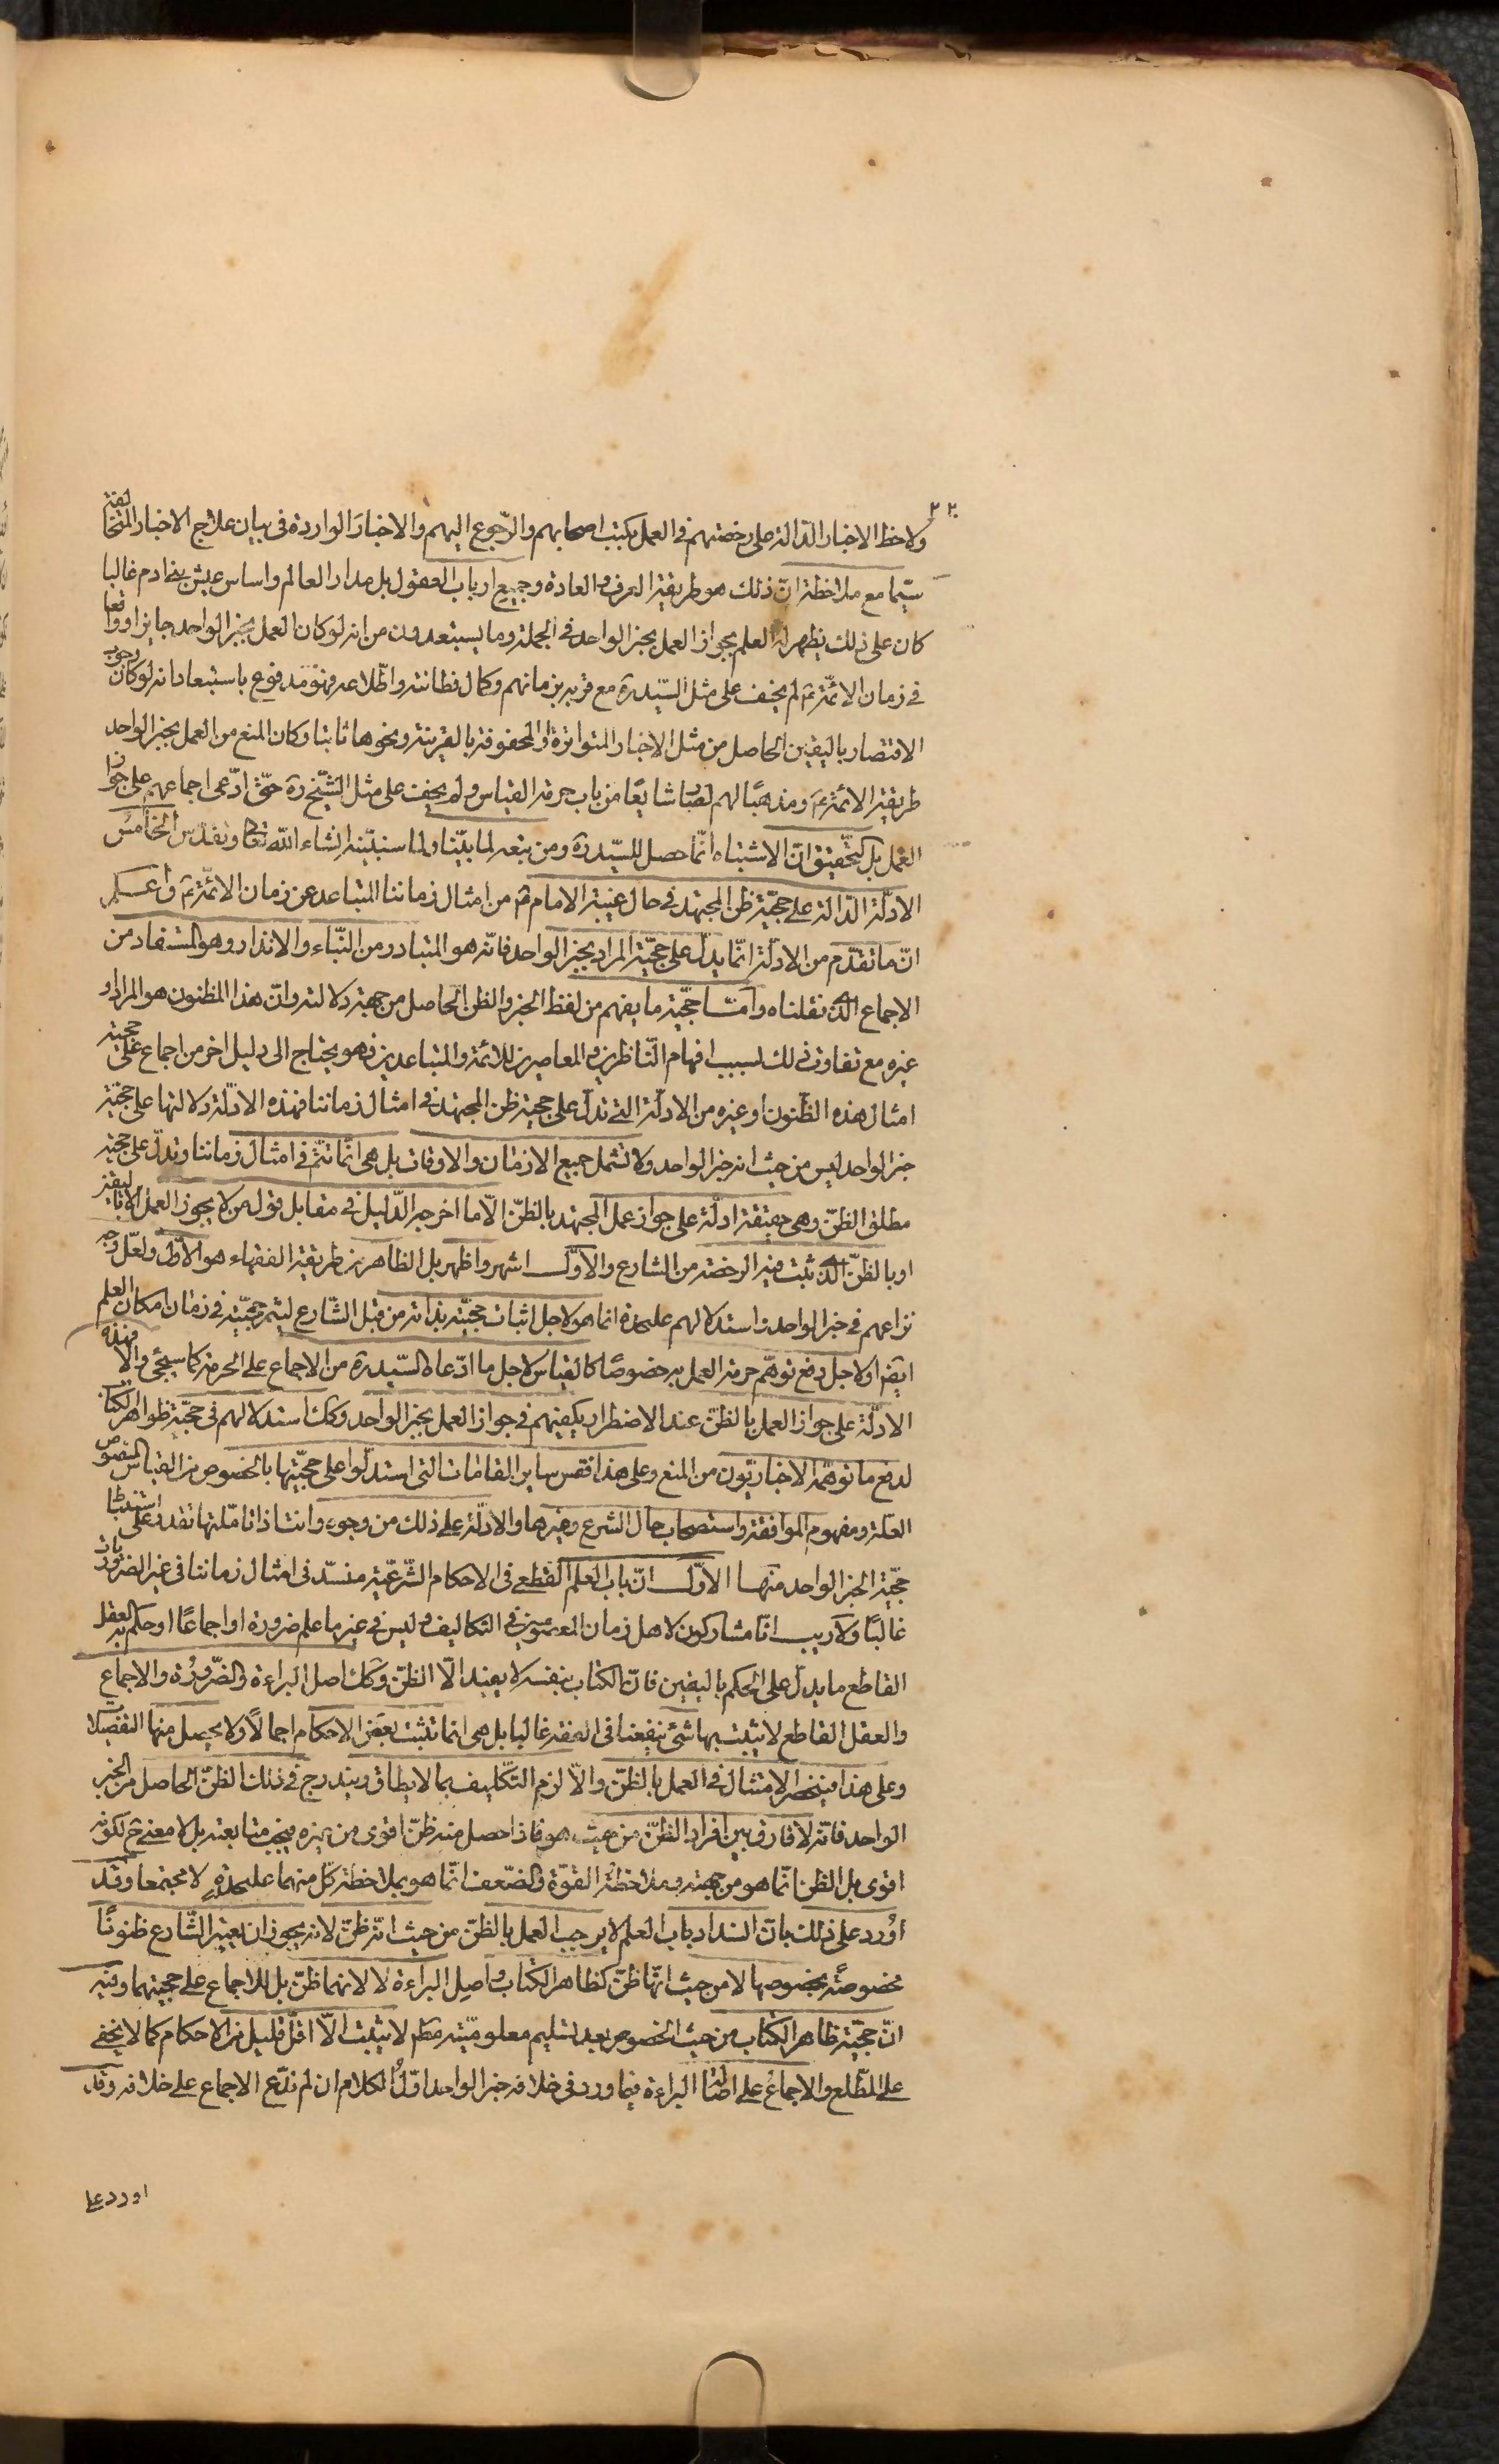 ٢٢
ولاحظ الاخبار الدالة على رخصتهم فى العمل بكتب اصحابهم والرجوع اليهم والاخبار الواردة فى بيان علاج الاخبار المتخالفة
سيّما مع ملاحظة انّ ذلك هو طريقة العرف والعادة وجميع ارباب العقول بل مدار العالم واساس عيش بنى ادم غالبا
كان على ذلك يظهر له العلم بجواز العمل بخبر الواحد فى الجملة وما يستبعدون من انه لو كان العمل بخبر الواحد جايزا وواقعا
فى زمان الائمّة ع لم يخف على مثل السيّد ره مع قربه بزمانهم وكمال فطانته واطّلاعه فهو مدفوع باستبعاد انه لو كان وجوب
الاقتصار باليقين الحاصل من مثل الاخبار المتواترة او المحفوفة بالقرينة ونحوها ثابتا وكان المنع من العمل بخبر الواحد
طريقة الائمّة ع ومذهبًا لهم لصار شايعًا من باب حرمة القياس ولم يخف على مثل الشّيخ ره حتّى ادّعى اجماعهم على جواز
العمل بل التحقيق انّ الاشتباه انّما حصل للسيّد ره ومن تبعه لما بيّنا ولما سنبيّنه انشاء الله تعالى وتقدّس الخامس
الادلّة الدالة على حجيّة ظن المجتهد فى حال غيبة الامام ع من امثال زماننا المتباعد عن زمان الائمّة ع واعلم
انّ ما تقدّم من الادلّة انّما يدلّ على حجيّة المراد بخبر الواحد فانّه هو المتبادر من النّباء والانذار وهو المستفاد من
الاجماع الذى نقلناه وامّا حجيّة ما يفهم من لفظ الخبر والظن الحاصل من جهة دلالته وانّ هذا المظنون هو المراد او
غيره مع تفاوت ذلك بسبب افهام النّاظرين والمعاصرين للائمّة والمتباعدين فهو يحتاج الى دليل اخر من اجماع على حجية
امثال هذه الظّنون او غيره من الادلّة التى تدلّ على حجية ظن المجتهد فى امثال زماننا فهذه الادلّة دلالتها على حجيّة
خبر الواحد ليس من حيث انه خبر الواحد ولا تشمل جميع الازمان والاوقات بل هى انّما تتمّ فى امثال زماننا وتدلّ على حجيّة
مطلق الظنّ وهى حقيقة ادلّة على جواز عمل المجتهد بالظنّ الّا ما اخرجه الدّليل فى مقابل قول من لا يجوز العمل الا باليقين
او بالظنّ الذى ثبت فيه الرخصة من الشارع والاوّل اشهر واظهر بل الظاهر من طريقة الفقهاء هو الاوّل ولعلّ وجه
نزاعهم فى خبر الواحد واستدلالهم عليحدة انما هو لاجل اثبات حجيّته بذاته من قبل الشّارع ليثمر حجيّته فى زمان امكان العلم
ايضا ولاجل دفع توهّم حرمة العمل به خصوصًا كالقياس لاجل ما ادّعاه السّيد ره من الاجماع على الحرمة كما سيجئ والّا فهذه
الادلّة على جواز العمل بالظنّ عند الاضطرار يكفيهم فى جواز العمل بخبر الواحد وكك استدلالهم فى حجيّة ظواهر الكتاب
لدفع ما توهّمه الاخباريّون من المنع وعلى هذا فقس ساير المقامات التى استدلّوا على حجيّتها بالخصوص من القياس المنصوص
العلّة ومفهوم الموافقة واستصحاب حال الشرع وغيرها والادلّة على ذلك من وجوه وانت اذا تأمّلتها تقدر على استنباط
حجيّة الخبر الواحد منها الاوّل انّ باب العلم القطعى فى الاحكام الشّرعيّة منسدّ فى امثال زماننا فى غير الضروريات
غالبًا ولا ريب انّا مشاركون لاهل زمان المعصومين فى التكاليف وليس فى غير ما علم ضرورة او اجماعًا او حكم به العقل
القاطع ما يدلّ على الحكم باليقين فانّ الكتاب بنفسه لا يفيد الّا الظنّ وكك اصل البراءة والضّرورة والاجماع
والعقل القاطع لا يثبت بها شئ ينفعنا فى الفقه غالبا بل هى انما تثبت بعض الاحكام اجمالًا ولا يحصل منها التفصيل
وعلى هذا فينحصر الامتثال فى العمل بالظنّ والّا لزم التّكليف بما لا يطاق ويندرج فى ذلك الظنّ الحاصل من الخبر
الواحد فانّه لا فارق بين افراد الظنّ من حيث هو فاذا حصل منه ظنّ اقوى من غيره فيجب متابعته بل لا معنى ح لكونه
اقوى بل الظن انّما هو من جهته وملاحظة القوّة والضّعف انّما هو بملاحظة كلّ منهما عليحدةٍ لا مجتمعا وقد
اورد على ذلك بانّ انسداد باب العلم لا يوجب العمل بالظنّ من حيث انّه ظنّ لانه يجوز ان يعتبر الشّارع ظنونًا
مخصوصةً بخصوصها لا من حيث انّها ظنّ كظاهر الكتاب واصل البراءة لا لانهما ظنّ بل للاجماع على حجيتهما وفيه
انّ حجيّة ظاهر الكتاب من حيث الخصوص بعد تسليم معلوميّته مطم لا يثبت الّا اقلّ قليل من الاحكام كما لا يخفى
على المطّلع والاجماع على اصالة البراءة فيما ورد فى خلافه خبر الواحد اوّل الكلام ان لم ندّع الاجماع على خلافه وقد
اورد على